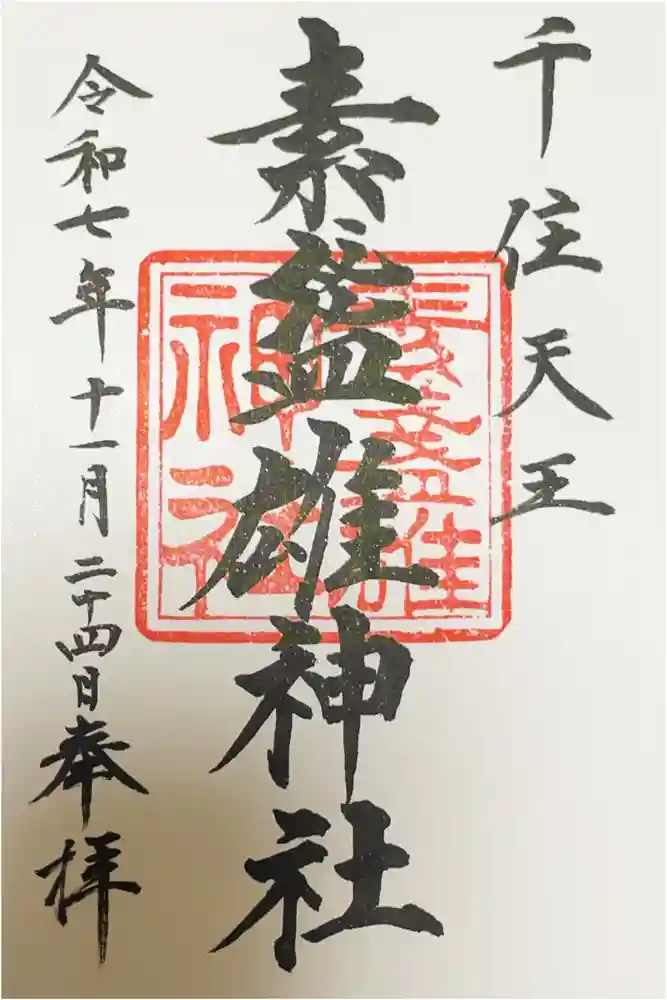 千住天王
素盞雄神社
素盞雄神社
令和七年十一月二十四日奉拝